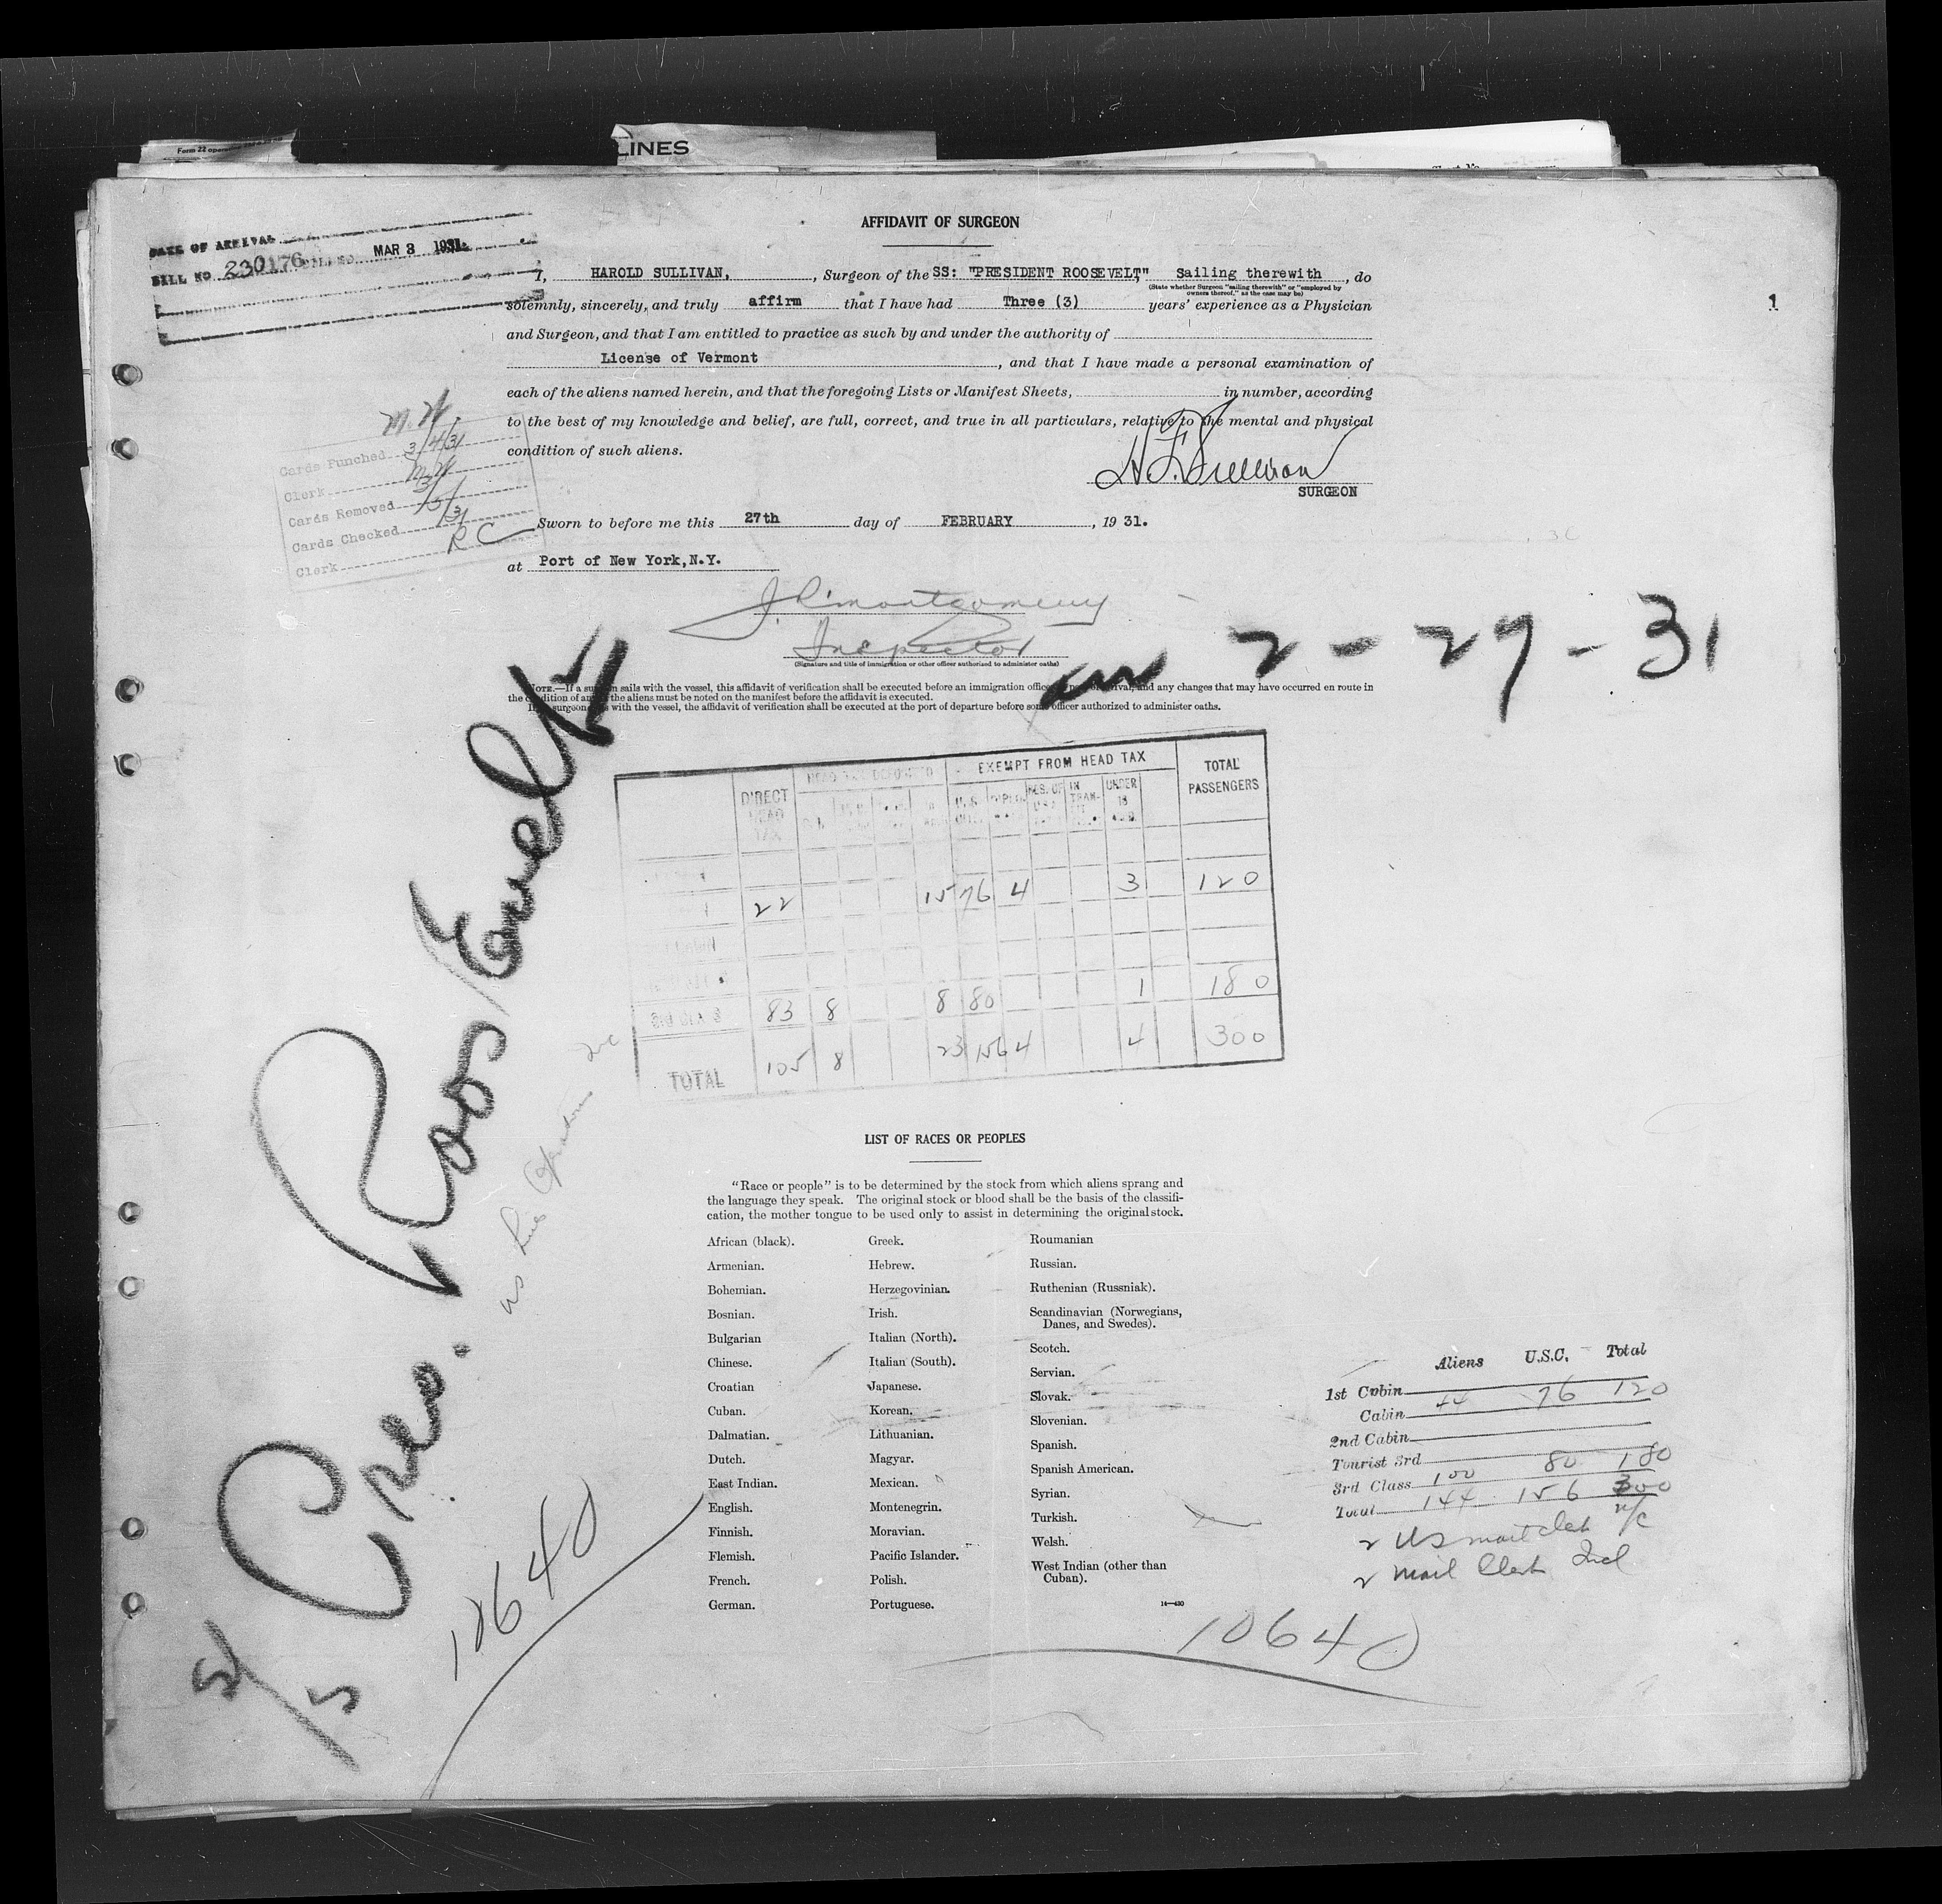 Form 22
LINES
AFFIDAVIT OF SURGEON
DATE OF ARRIVAL
MAR 3 1931
BILL NO 230176
1
I, HAROLD SULLIVAN, , Surgeon of the SS: "PRESIDENT ROOSEVELT" Sailing therewith , do
(State whether Surgeon "sailing therewith" or "employed by
owners thereof," as the case may be)
solemnly, sincerely, and truly affirm that I have had Three (3) years' experience as a Physician
and Surgeon, and that I am entitled to practice as such by and under the authority of
License of Vermont , and that I have made a personal examination of
each of the aliens named herein, and that the foregoing Lists or Manifest Sheets, in number, according
to the best of my knowledge and belief, are full, correct, and true in all particulars, relative to the mental and physical
condition of such aliens.
H.F. Sullivan
SURGEON
Cards Punched 3/4/31
Clerk
Cards Removed 3/5/31
Cards Checked
Clerk RC
Sworn to before me this 27th day of FEBRUARY , 19 31.
at Port of New York, N.Y.
J. R. Montgomery
Inspector
(Signature and title of immigration or other officer authorized to administer oaths)
2-27-31
NOTE.—If a surgeon sails with the vessel, this affidavit of verification shall be executed before an immigration officer at port of arrival, and any changes that may have occurred en route in
the condition of any of the aliens must be noted on the manifest before the affidavit is executed.
with the vessel, the affidavit of verification shall be executed at the port of departure before some officer authorized to administer oaths.
DIRECT HEAD TAX HEAD TAX DEPOSITED EXEMPT FROM HEAD TAX TOTAL PASSENGERS
RES. OF U.S.A. IN TRANSIT UNDER 16
22 15 76 4 3 120
3RD CLASS 83 8 8 80 1 180
TOTAL 105 8 23 156 4 4 300
S/S Pres. Roosevelt
10640
LIST OF RACES OR PEOPLES
"Race or people" is to be determined by the stock from which aliens sprang and
the language they speak. The original stock or blood shall be the basis of the classifi-
cation, the mother tongue to be used only to assist in determining the original stock.
African (black).
Armenian.
Bohemian.
Bosnian.
Bulgarian
Chinese.
Croatian
Cuban.
Dalmatian.
Dutch.
East Indian.
English.
Finnish.
Flemish.
French.
German.
Greek.
Hebrew.
Herzegovinian.
Irish.
Italian (North).
Italian (South).
Japanese.
Korean.
Lithuanian.
Magyar.
Mexican.
Montenegrin.
Moravian.
Pacific Islander.
Polish.
Portuguese.
Roumanian
Russian.
Ruthenian (Russniak).
Scandinavian (Norwegians,
Danes, and Swedes).
Scotch.
Servian.
Slovak.
Slovenian.
Spanish.
Spanish American.
Syrian.
Turkish.
Welsh.
West Indian (other than
Cuban).
14—430
Aliens U.S.C. Total
1st Cabin
Cabin 44 76 120
2nd Cabin
Tourist 3rd
3rd Class 100 80 180
Total 144 156 300
2 US mail
2 mail Clerk Incl
10640